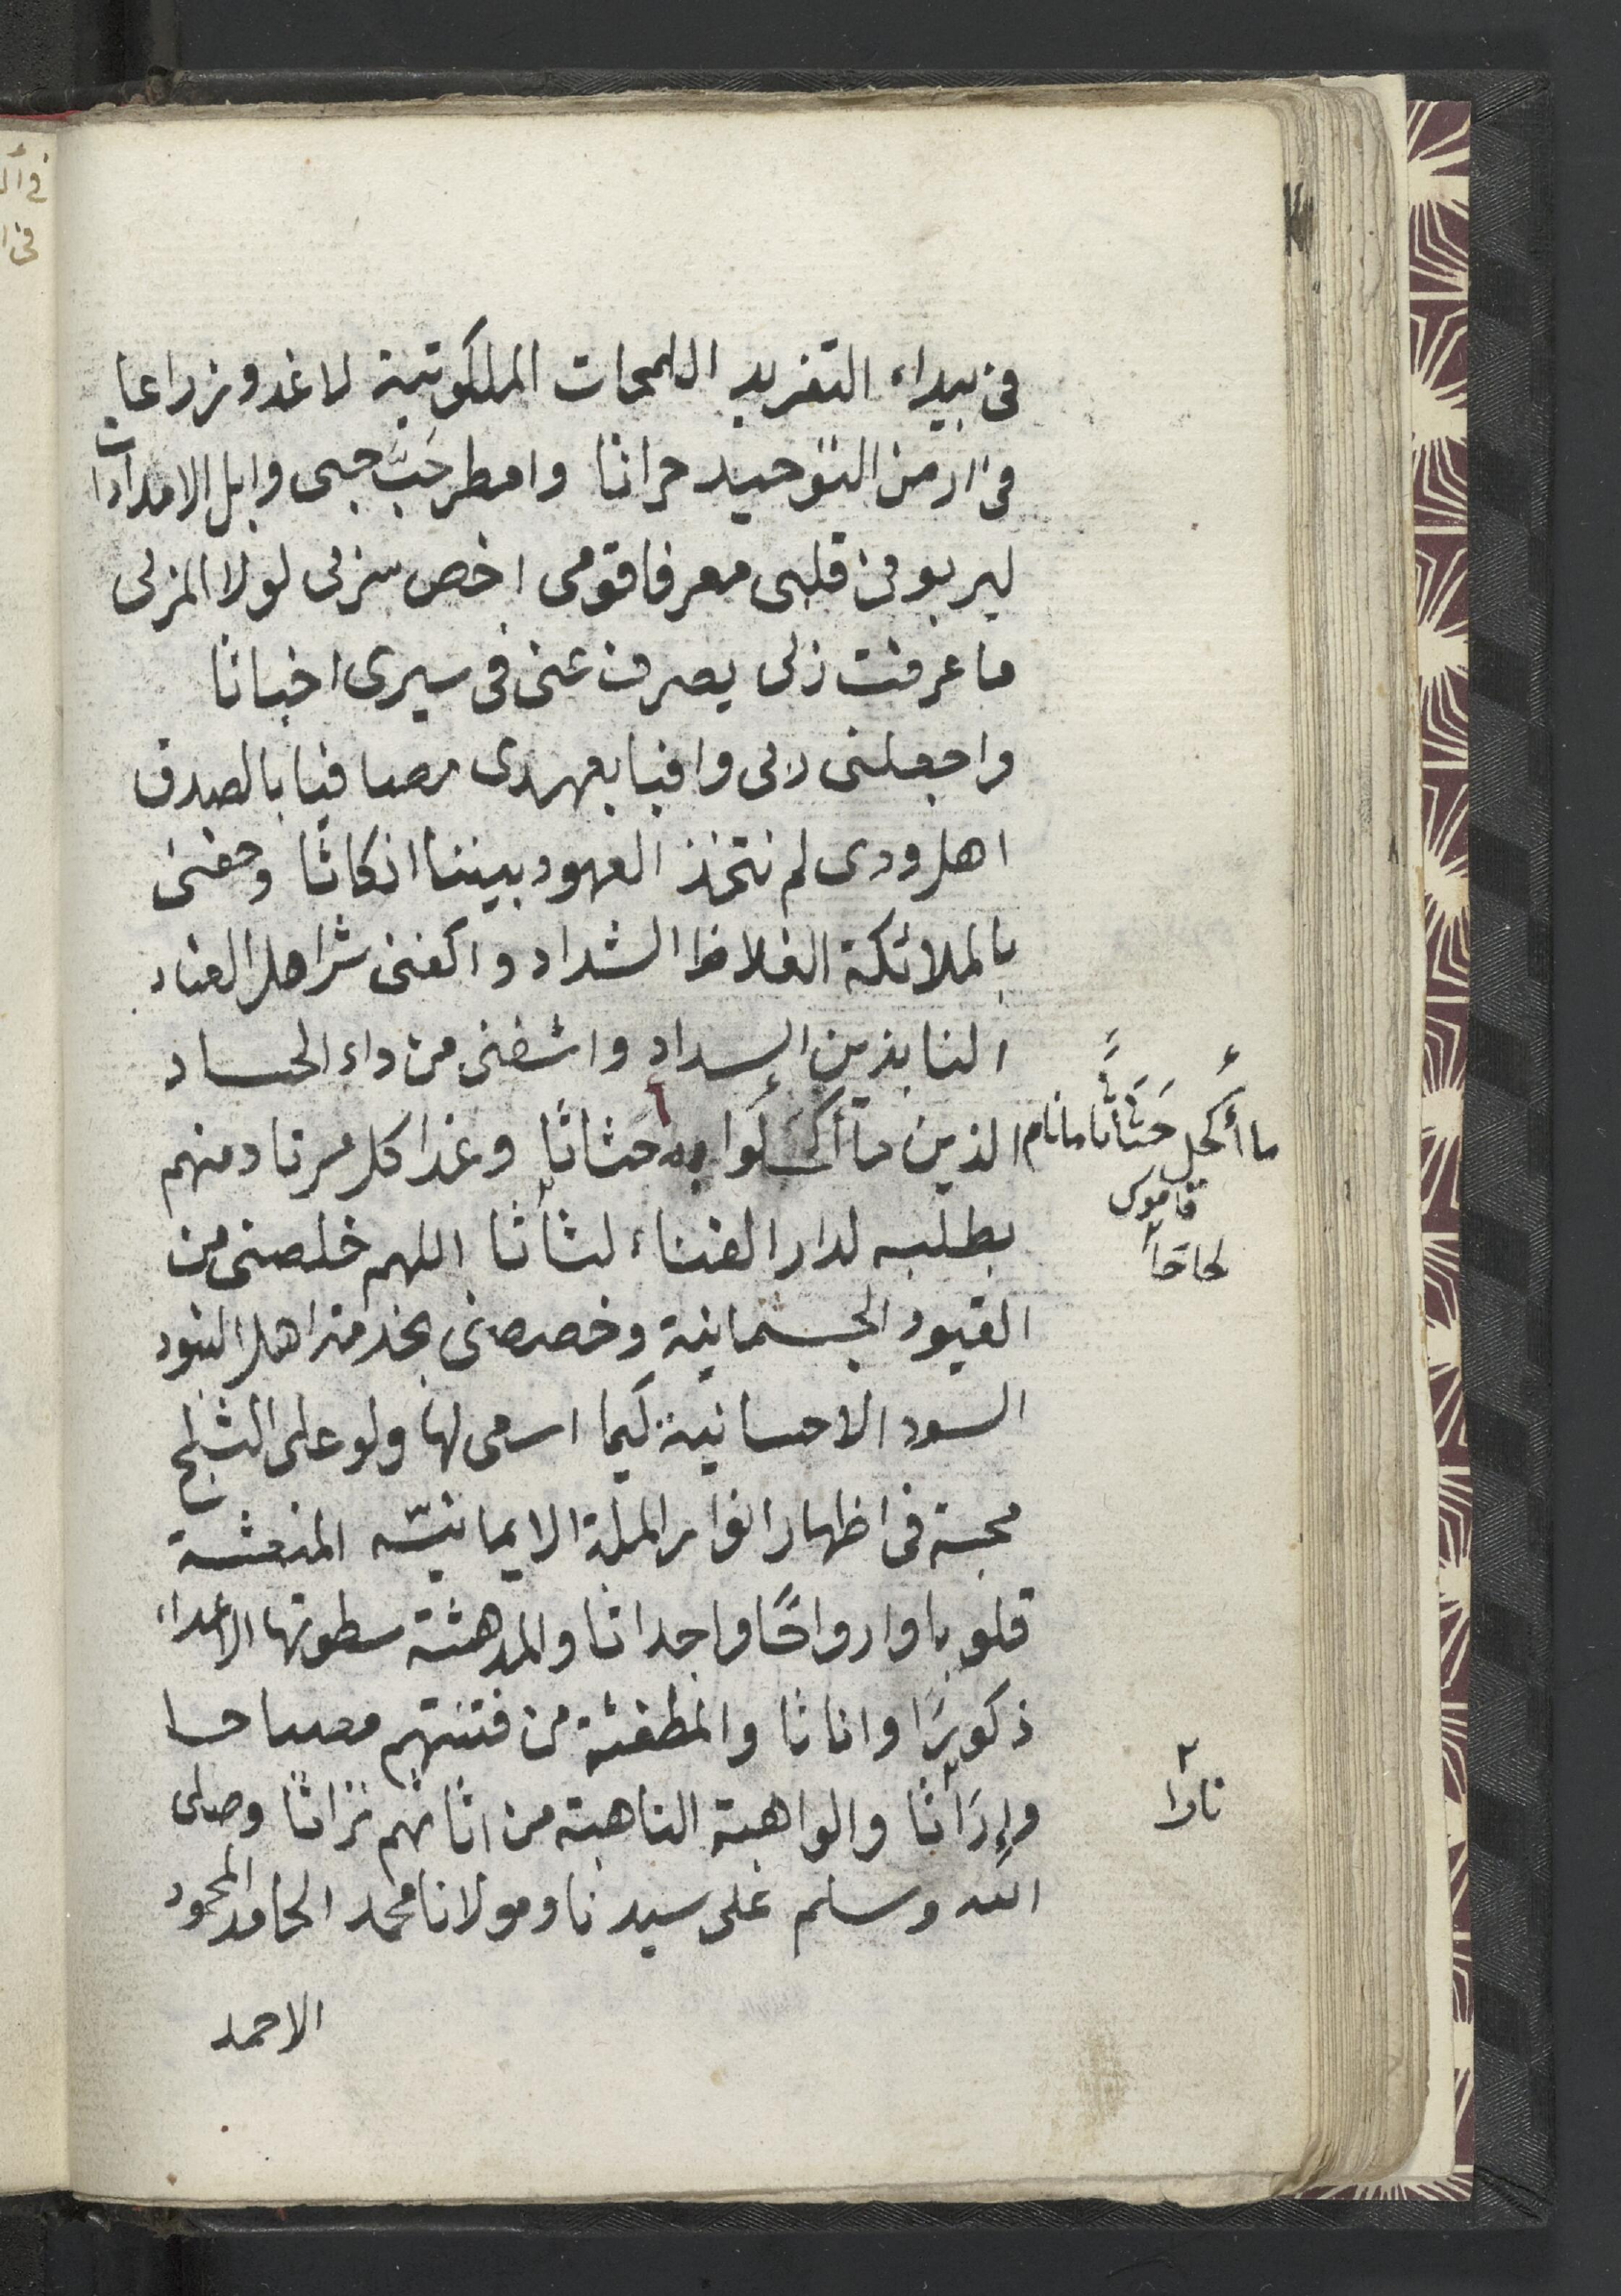 في بيداء التفريد اللمحات الملكوتية لاغدو زراعا
في ارض التوحيد حراثا وامطر حَبَّ حبى وابل الامدادات
ليربو في قلبى معرفا قومى اخص منزلى لولا المزلى
ما عرفت زلى يصرف عنى في سيرى اخباثا
واجعلنى ربى وافيا بعهدى مصافيا بالصدق
اهل ودى لم نتخذ العهود بيننا انكاثا وحفنى
بالملائكة الغلاظ الشداد واكفنى شر اهل العناد
النابذين السداد واشفنى من داء الحساد
الذين ما أكحلوا به حثاثا وغدا كل مرتاد منهم
بطلبه لدار الفناء لثاثا اللهم خلصنى من
القيود الجسمانية وخصصنى بخدمة اهل البنود
السود الاحسانية كيما اسعى لها ولو على الثلج
محبة في اظهار انوار الملة الايمانيّه المنعشة
قلوبا وارواحًا واجداثا والمدهشة سطوتها الاعداء
ذكورًا واناثا والمطفئة من فتنتهم مصباحا
وإرَاثا والواهبة الناهبة من اثاثهم تراثا وصلى
الله وسلم على سيدنا ومولانا محمد الحامد المحمود
الاحمد
ما أكحل حَثَاثًا ما نام
قاموس
لحاحا
نارا